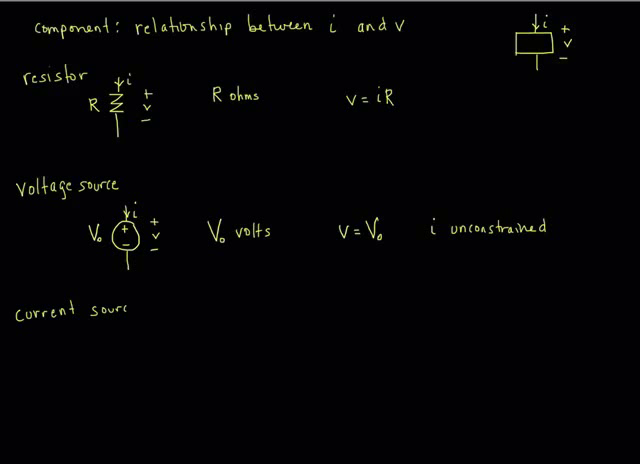 component: relationship between i and v
i
+
v
−
resistor
i
R
+
v
−
R ohms
v = iR
voltage source
i
V₀
+
−
+
v
−
V₀ volts
v = V₀
i unconstrained
current sourc